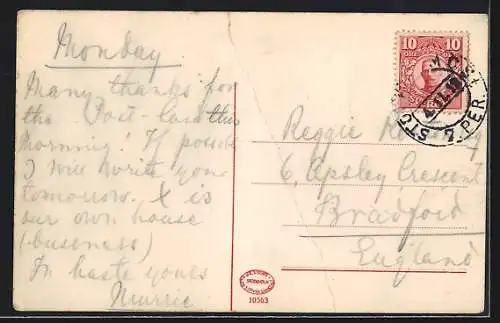 Monday
Many thanks for
the Post-Card this
morning! If possible
I will write you
tomorrow. X is
our own house
(business)
In haste yours
10 10
Reggie
6, Apsley Crescent
Bradford
England
STOCKHOLM
10563